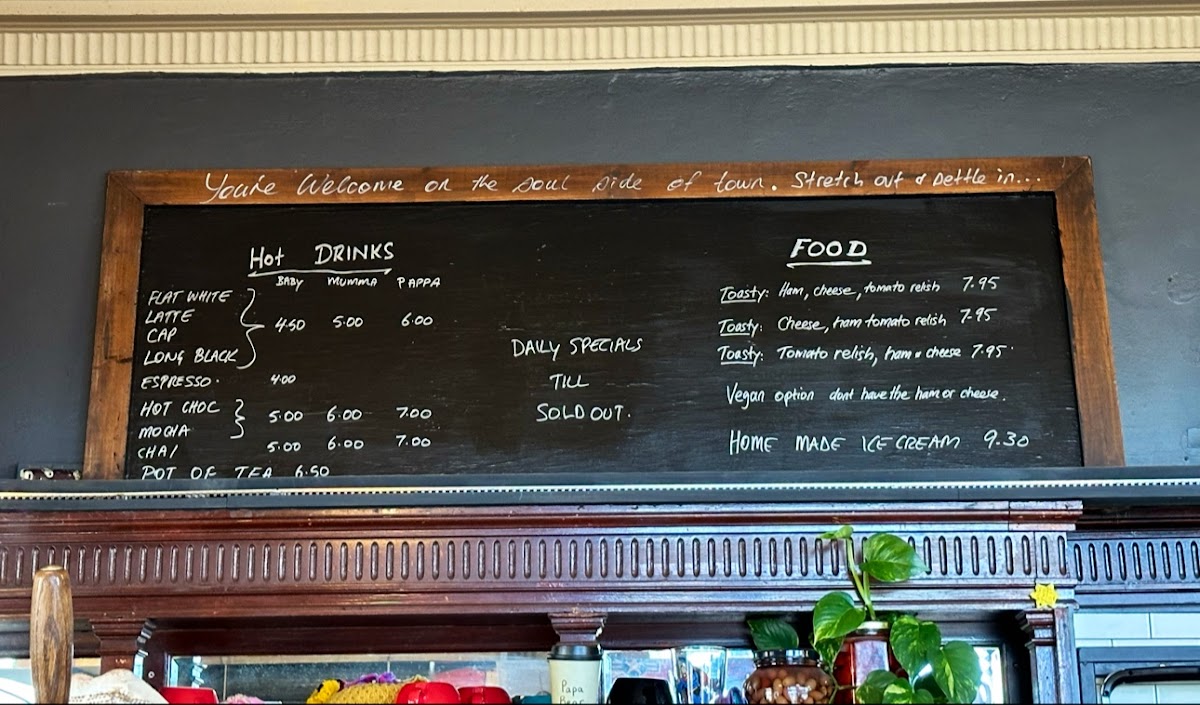 You're Welcome on the soul side of town. Stretch out & settle in...
Hot DRINKS
BABY MUMMA PAPPA
FLAT WHITE
LATTE
CAP
LONG BLACK
4.50 5.00 6.00
ESPRESSO. 4.00
HOT CHOC
MOCHA
5.00 6.00 7.00
CHAI 5.00 6.00 7.00
POT OF TEA 6.50
DAILY SPECIALS
TILL
SOLD OUT.
FOOD
Toasty: Ham, cheese, tomato relish 7.95
Toasty: Cheese, ham tomato relish 7.95
Toasty: Tomato relish, ham & cheese 7.95
Vegan option dont have the ham or cheese.
HOME MADE ICE CREAM 9.30
Papa
Bear